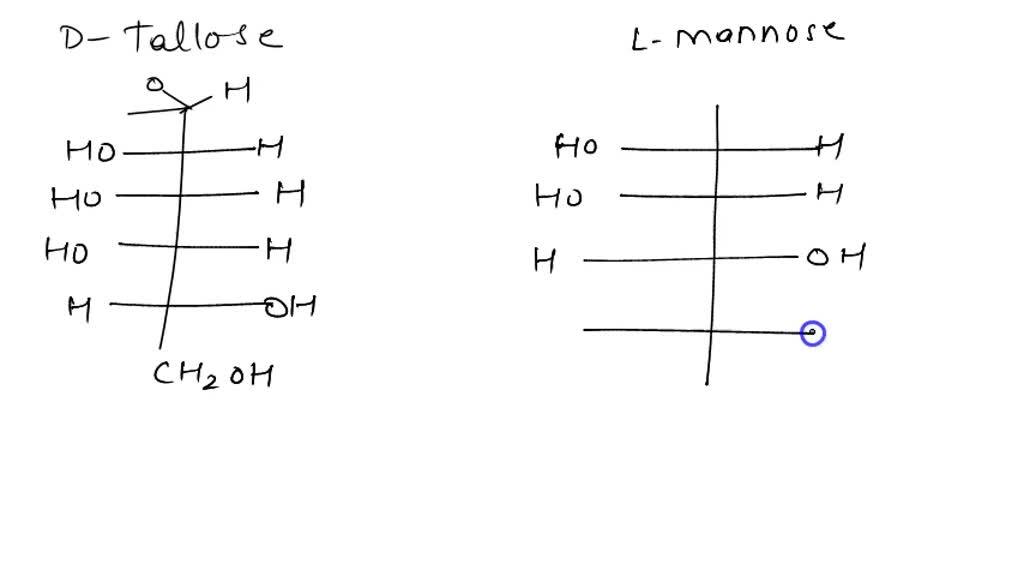 D- Tallose
L- mannose
O H
HO H
HO H
HO H
HO H
HO H
H OH
H OH
CH2OH